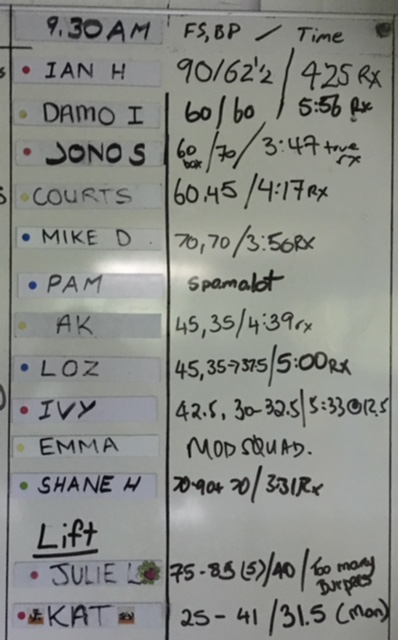 9.30AM FS,BP / Time
IAN H 90/62½ / 4:25 Rx
DAMO I 60/60 / 5:56 Rx
JONO S 60 box /70/ 3:47 true rx
COURTS 60,45/4:17 Rx
MIKE D. 70,70/3:56 RX
PAM Spamalot
AK 45,35/4:39 rx
LOZ 45,35→37.5/5:00 Rx
IVY 42.5, 30-32.5/5:33@12.5
EMMA MOD SQUAD.
SHANE H 70-90+ 70/3:31 Rx
Lift
JULIE 75-85(5)/40/Too many Burpees
KAT 25-41/31.5 (Mon)